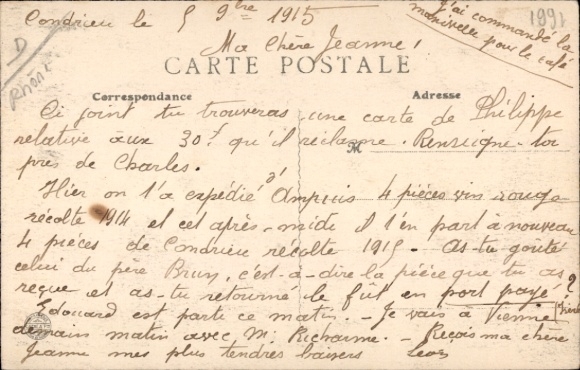 Condrieu le 5 9bre 1915
J'ai commandé la
manivelle pour le café
1991
D
Rhône
Ma chère Jeanne,
CARTE POSTALE
Correspondance
Adresse
Ci joint tu trouveras une carte de Philippe
relative aux 30f qu'il réclame. Renseigne-toi
près de Charles.
M
Hier on t'a expédié d'Ampuis 4 pièces vin rouge
récolte 1914 et cet après-midi il t'en part à nouveau
4 pièces de Condrieu récolte 1915 - As-tu goûté
celui du père Brun, c'est-à-dire la pièce que tu as
reçue et as-tu retourné le fût en port payé ?
Edouard est parti ce matin. - Je vais à Vienne
demain matin avec M. Richarme. - Reçois ma chère
Jeanne mes plus tendres baisers Léon